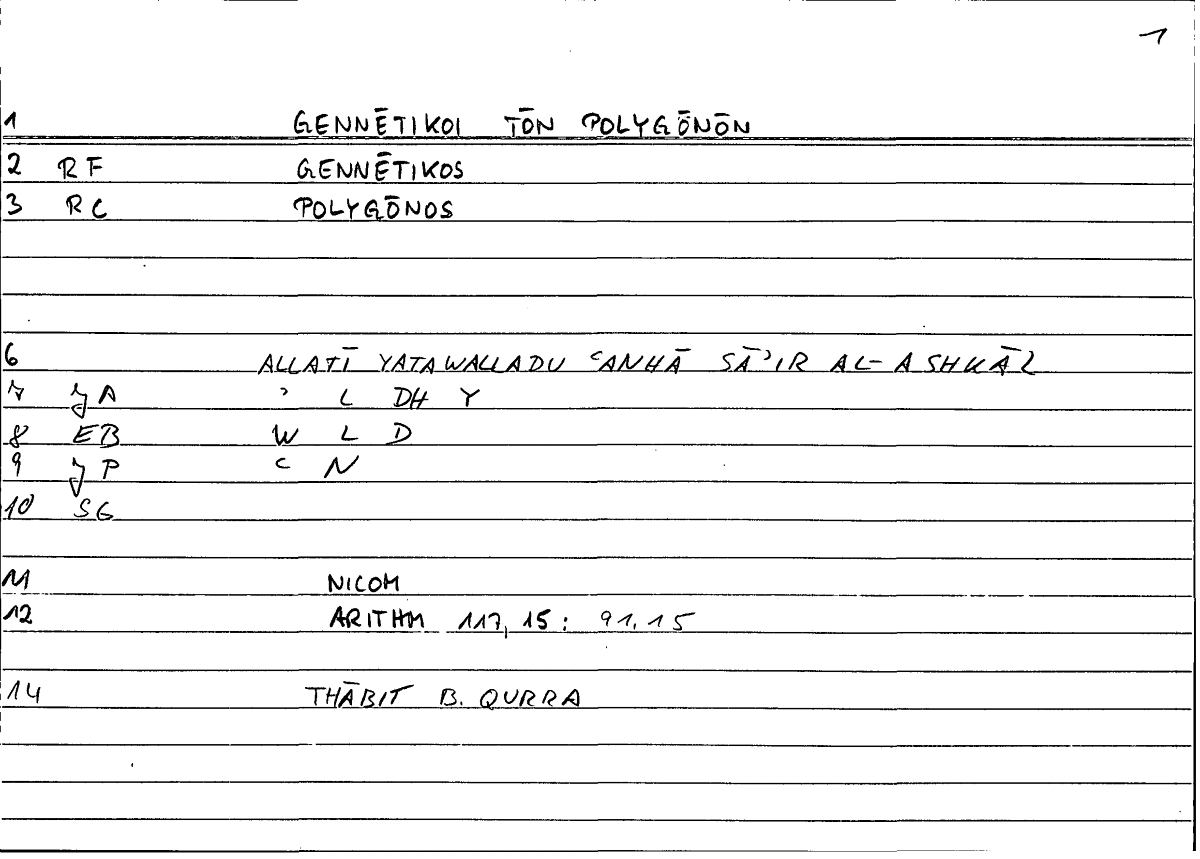 1
1 GENNĒTIKOI TŌN POLYGŌNŌN
2 RF GENNĒTIKOS
3 RC POLYGŌNOS
6 ALLATĪ YATAWALLADU ʿANHĀ SĀʾIR AL-ASHKĀL
7 JA ʾ L DH Y
8 EB W L D
9 JP ʿ N
10 SG
11 NICOM
12 ARITHM 117,15: 91,15
14 THĀBIT B. QURRA